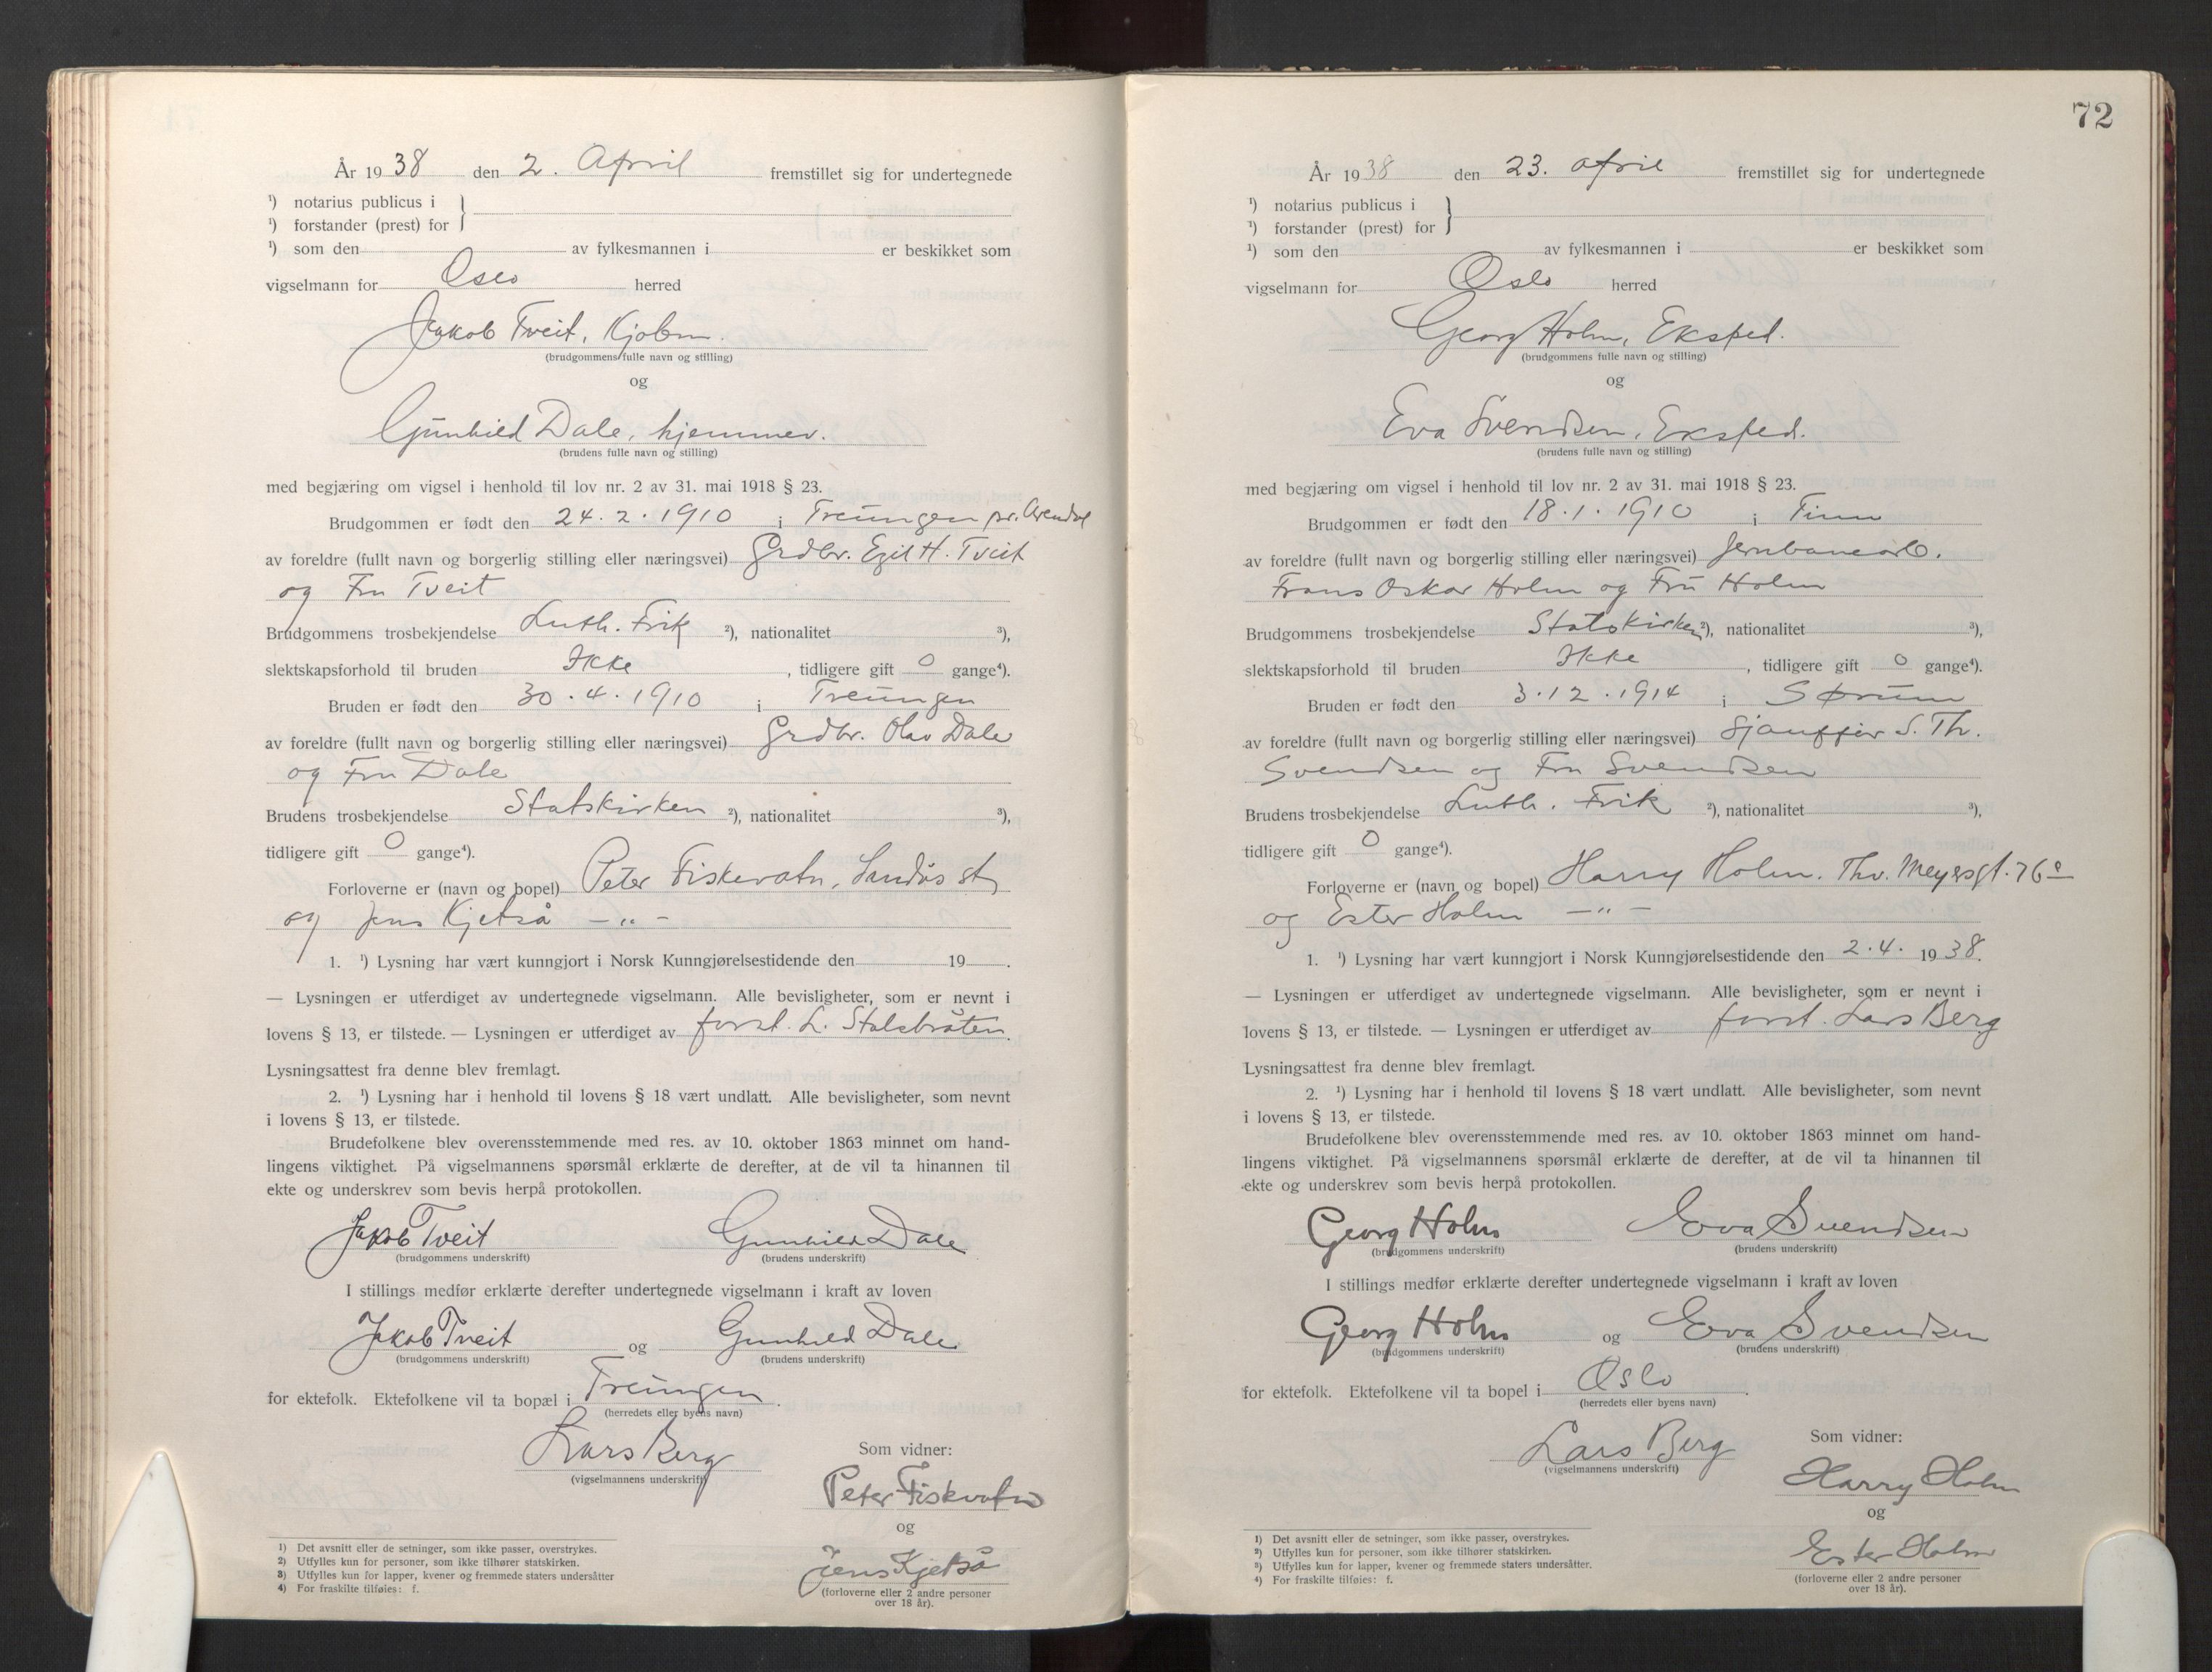 År 1938 den 2. April fremstillet sig for undertegnede
¹) notarius publicus i
¹) forstander (prest) for
¹) som den av fylkesmannen i er beskikket som
vigselmann for Oslo herred
Jakob Tveit, Kjøbm.
(brudgommens fulle navn og stilling)
og
Gunhild Dale, hjemmev.
(brudens fulle navn og stilling)
med begjæring om vigsel i henhold til lov nr. 2 av 31. mai 1918 § 23.
Brudgommen er født den 24.2.1910 i Treungen pr. Arendal
av foreldre (fullt navn og borgerlig stilling eller næringsvei) Grdbr. Egil H. Tveit
og Fru Tveit
Brudgommens trosbekjendelse Luth. Frik ²), nationalitet ³),
slektskapsforhold til bruden Ikke , tidligere gift 0 gange⁴).
Bruden er født den 30.4.1910 i Treungen
av foreldre (fullt navn og borgerlig stilling eller næringsvei) Grdbr. Olav Dale
og Fru Dale
Brudens trosbekjendelse Statskirken ²), nationalitet ³),
tidligere gift 0 gange⁴).
Forloverne er (navn og bopel) Peter Fiskevatn, st
og Jens Kjetså — „ —
1. ¹) Lysning har vært kunngjort i Norsk Kunngjørelsestidende den 19 .
— Lysningen er utferdiget av undertegnede vigselmann. Alle bevisligheter, som er nevnt i
lovens § 13, er tilstede. — Lysningen er utferdiget av forst. L. Stalsbråten.
Lysningsattest fra denne blev fremlagt.
2. ¹) Lysning har i henhold til lovens § 18 vært undlatt. Alle bevisligheter, som nevnt
i lovens § 13, er tilstede.
Brudefolkene blev overensstemmende med res. av 10. oktober 1863 minnet om hand-
lingens viktighet. På vigselmannens spørsmål erklærte de derefter, at de vil ta hinannen til
ekte og underskrev som bevis herpå protokollen.
Jakob Tveit Gunhild Dale
(brudgommens underskrift) (brudens underskrift)
I stillings medfør erklærte derefter undertegnede vigselmann i kraft av loven
Jakob Tveit og Gunhild Dale
(brudgommens underskrift) (brudens underskrift)
for ektefolk. Ektefolkene vil ta bopæl i Treungen .
(herredets eller byens navn)
Lars Berg
(vigselmannens underskrift)
Som vidner:
Peter Fiskvatn
og
Jens Kjetså
(forloverne eller 2 andre personer
over 18 år).
1) Det avsnitt eller de setninger, som ikke passer, overstrykes.
2) Utfylles kun for personer, som ikke tilhører statskirken.
3) Utfylles kun for lapper, kvener og fremmede staters undersåtter
4) For fraskilte tilføies: f.
72
År 1938 den 23. april fremstillet sig for undertegnede
¹) notarius publicus i
¹) forstander (prest) for
¹) som den av fylkesmannen i er beskikket som
vigselmann for Oslo herred
Georg Holm, Eksped.
(brudgommens fulle navn og stilling)
og
Eva Svendsen, Eksped.
(brudens fulle navn og stilling)
med begjæring om vigsel i henhold til lov nr. 2 av 31. mai 1918 § 23.
Brudgommen er født den 18.1.1910 i Tinn
av foreldre (fullt navn og borgerlig stilling eller næringsvei) Jernbanearb.
Frans Oskar Holm og Fru Holm
Brudgommens trosbekjendelse Statskirken ²), nationalitet ³),
slektskapsforhold til bruden Ikke , tidligere gift 0 gange⁴).
Bruden er født den 3.12.1914 i Sørum
av foreldre (fullt navn og borgerlig stilling eller næringsvei) Sjauffør S. Th.
Svendsen og Fru Svendsen
Brudens trosbekjendelse Luth. Frik ²), nationalitet ³),
tidligere gift 0 gange⁴).
Forloverne er (navn og bopel) Harry Holm. Thv. Meyersgt. 76
og Ester Holm — „ —
1. ¹) Lysning har vært kunngjort i Norsk Kunngjørelsestidende den 2.4. 1938.
— Lysningen er utferdiget av undertegnede vigselmann. Alle bevisligheter, som er nevnt i
lovens § 13, er tilstede. — Lysningen er utferdiget av forst. Lars Berg
Lysningsattest fra denne blev fremlagt.
2. ¹) Lysning har i henhold til lovens § 18 vært undlatt. Alle bevisligheter, som nevnt
i lovens § 13, er tilstede.
Brudefolkene blev overensstemmende med res. av 10. oktober 1863 minnet om hand-
lingens viktighet. På vigselmannens spørsmål erklærte de derefter, at de vil ta hinannen til
ekte og underskrev som bevis herpå protokollen.
Georg Holm Eva Svendsen
(brudgommens underskrift) (brudens underskrift)
I stillings medfør erklærte derefter undertegnede vigselmann i kraft av loven
Georg Holm og Eva Svendsen
(brudgommens underskrift) (brudens underskrift)
for ektefolk. Ektefolkene vil ta bopel i Oslo .
(herredets eller byens navn)
Lars Berg
(vigselmannens underskrift)
Som vidner:
Harry Holm
og
Ester Holm
(forloverne eller 2 andre personer
over 18 år).
1) Det avsnitt eller de setninger, som ikke passer, overstrykes.
2) Utfylles kun for personer, som ikke tilhører statskirken.
3) Utfylles kun for lapper, kvener og fremmede staters undersåtter.
4) For fraskilte tilføies: f.